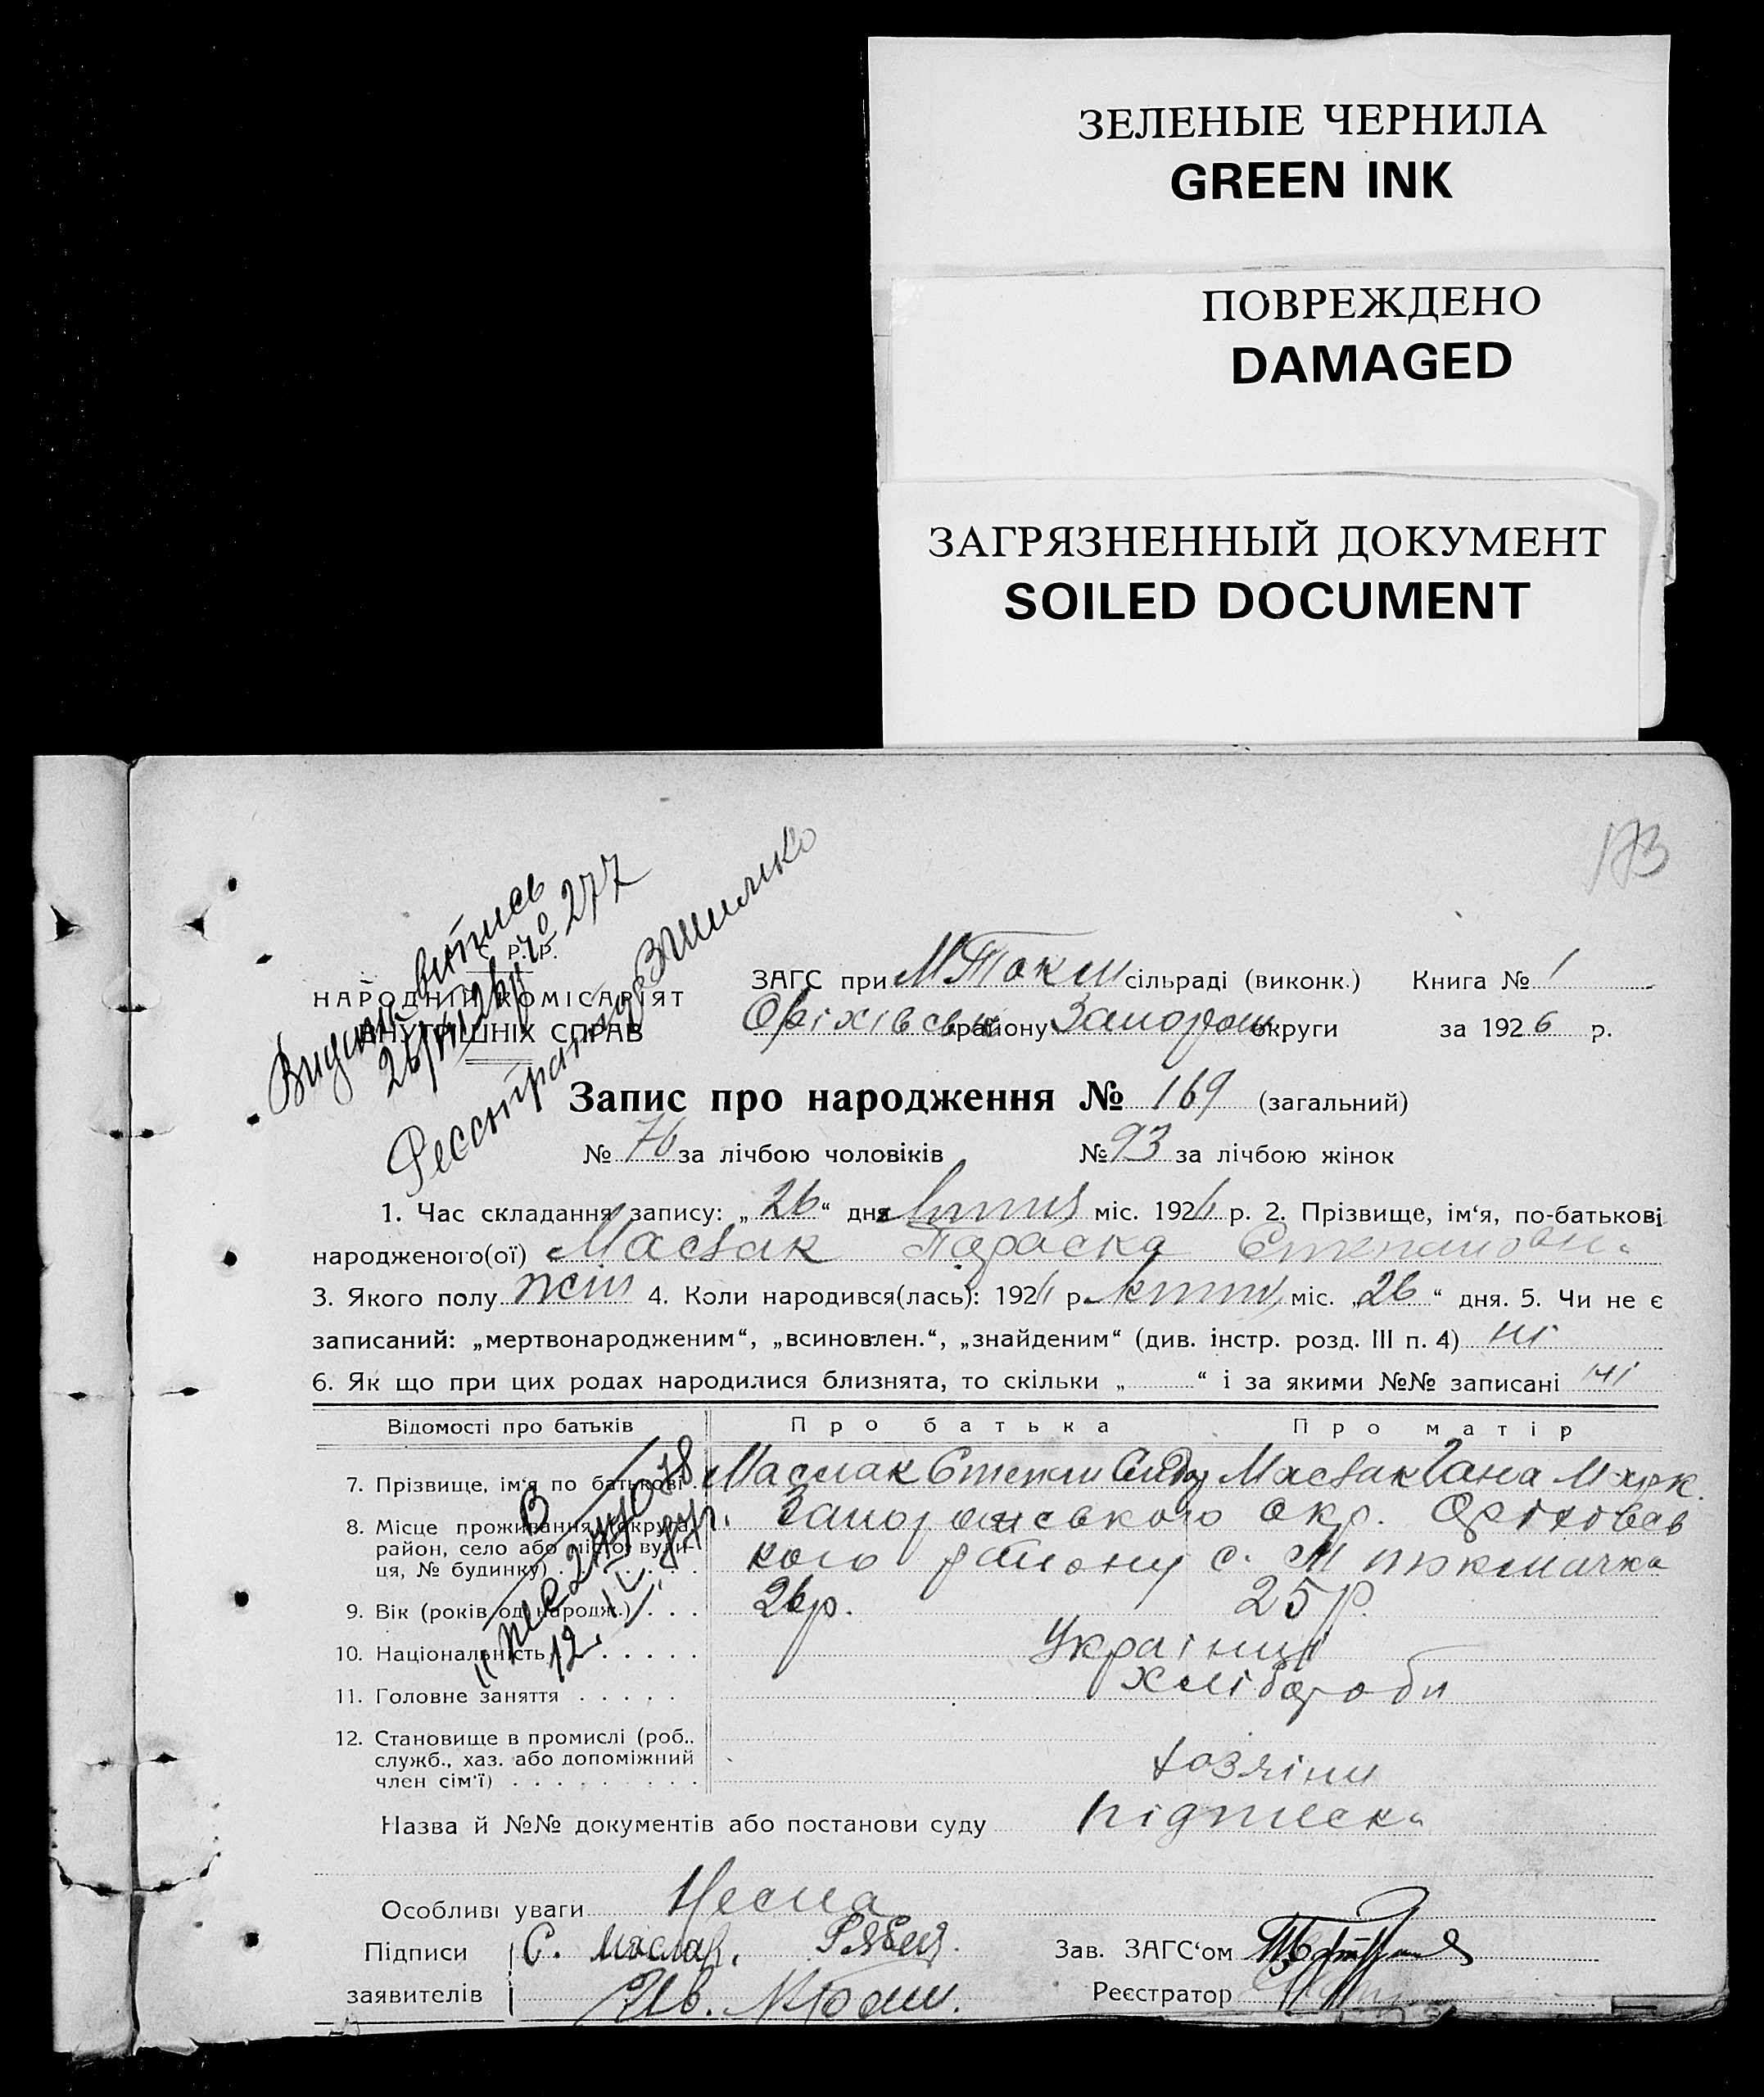 ЗЕЛЕНЫЕ ЧЕРНИЛА
GREEN INK
ПОВРЕЖДЕНО
DAMAGED
ЗАГРЯЗНЕННЫЙ ДОКУМЕНТ
SOILED DOCUMENT
173
Видано витись
277
С. Р. Р.
НАРОДНІЙ КОМІСАРІЯТ
ВНУТРІШНІХ СПРАВ
ЗАГС при М Токм сільраді (виконк.) Книга № 1
Оріхівськ району Запорож округи за 1926 р.
Запис про народження № 169 (загальний)
№ 76 за лічбою чоловіків № 93 за лічбою жінок
1. Час складання запису: „ 26 “ дня липня міс. 1926 р. 2. Прізвище, ім‘я, по-батькові
народженого(ої) Маслак Параска Степановна
3. Якого полу жін 4. Коли народився(лась): 1926 р. липня міс. „ 26 “ дня. 5. Чи не є
записаний: „мертвонародженим“, „всиновлен.“, „знайденим“ (див. інстр. розд. III п. 4) ні
6. Як що при цих родах народилися близнята, то скільки „ “ і за якими №№ записані ні
Відомості про батьків Про батька Про матір
7. Прізвище, ім‘я по батькові Маслак Степан Сидор Маслак Гана Марк.
8. Місце проживання (округа, Запорожського окр. Оріховсь
район, село або місто, вули- кого району с. М Токмачка
ця, № будинку)
9. Вік (років од народж.) 26р. 25 р.
10. Національність Українці
11. Головне заняття хлібороби
12. Становище в промислі (роб..
служб., хаз. або допоміжний хозяіни
член сім‘ї)
Назва й №№ документів або постанови суду підписка
Особливі уваги Нема
Підписи С. Маслак. Зав. ЗАГС‘ом
заявителів Ив. Реєстратор